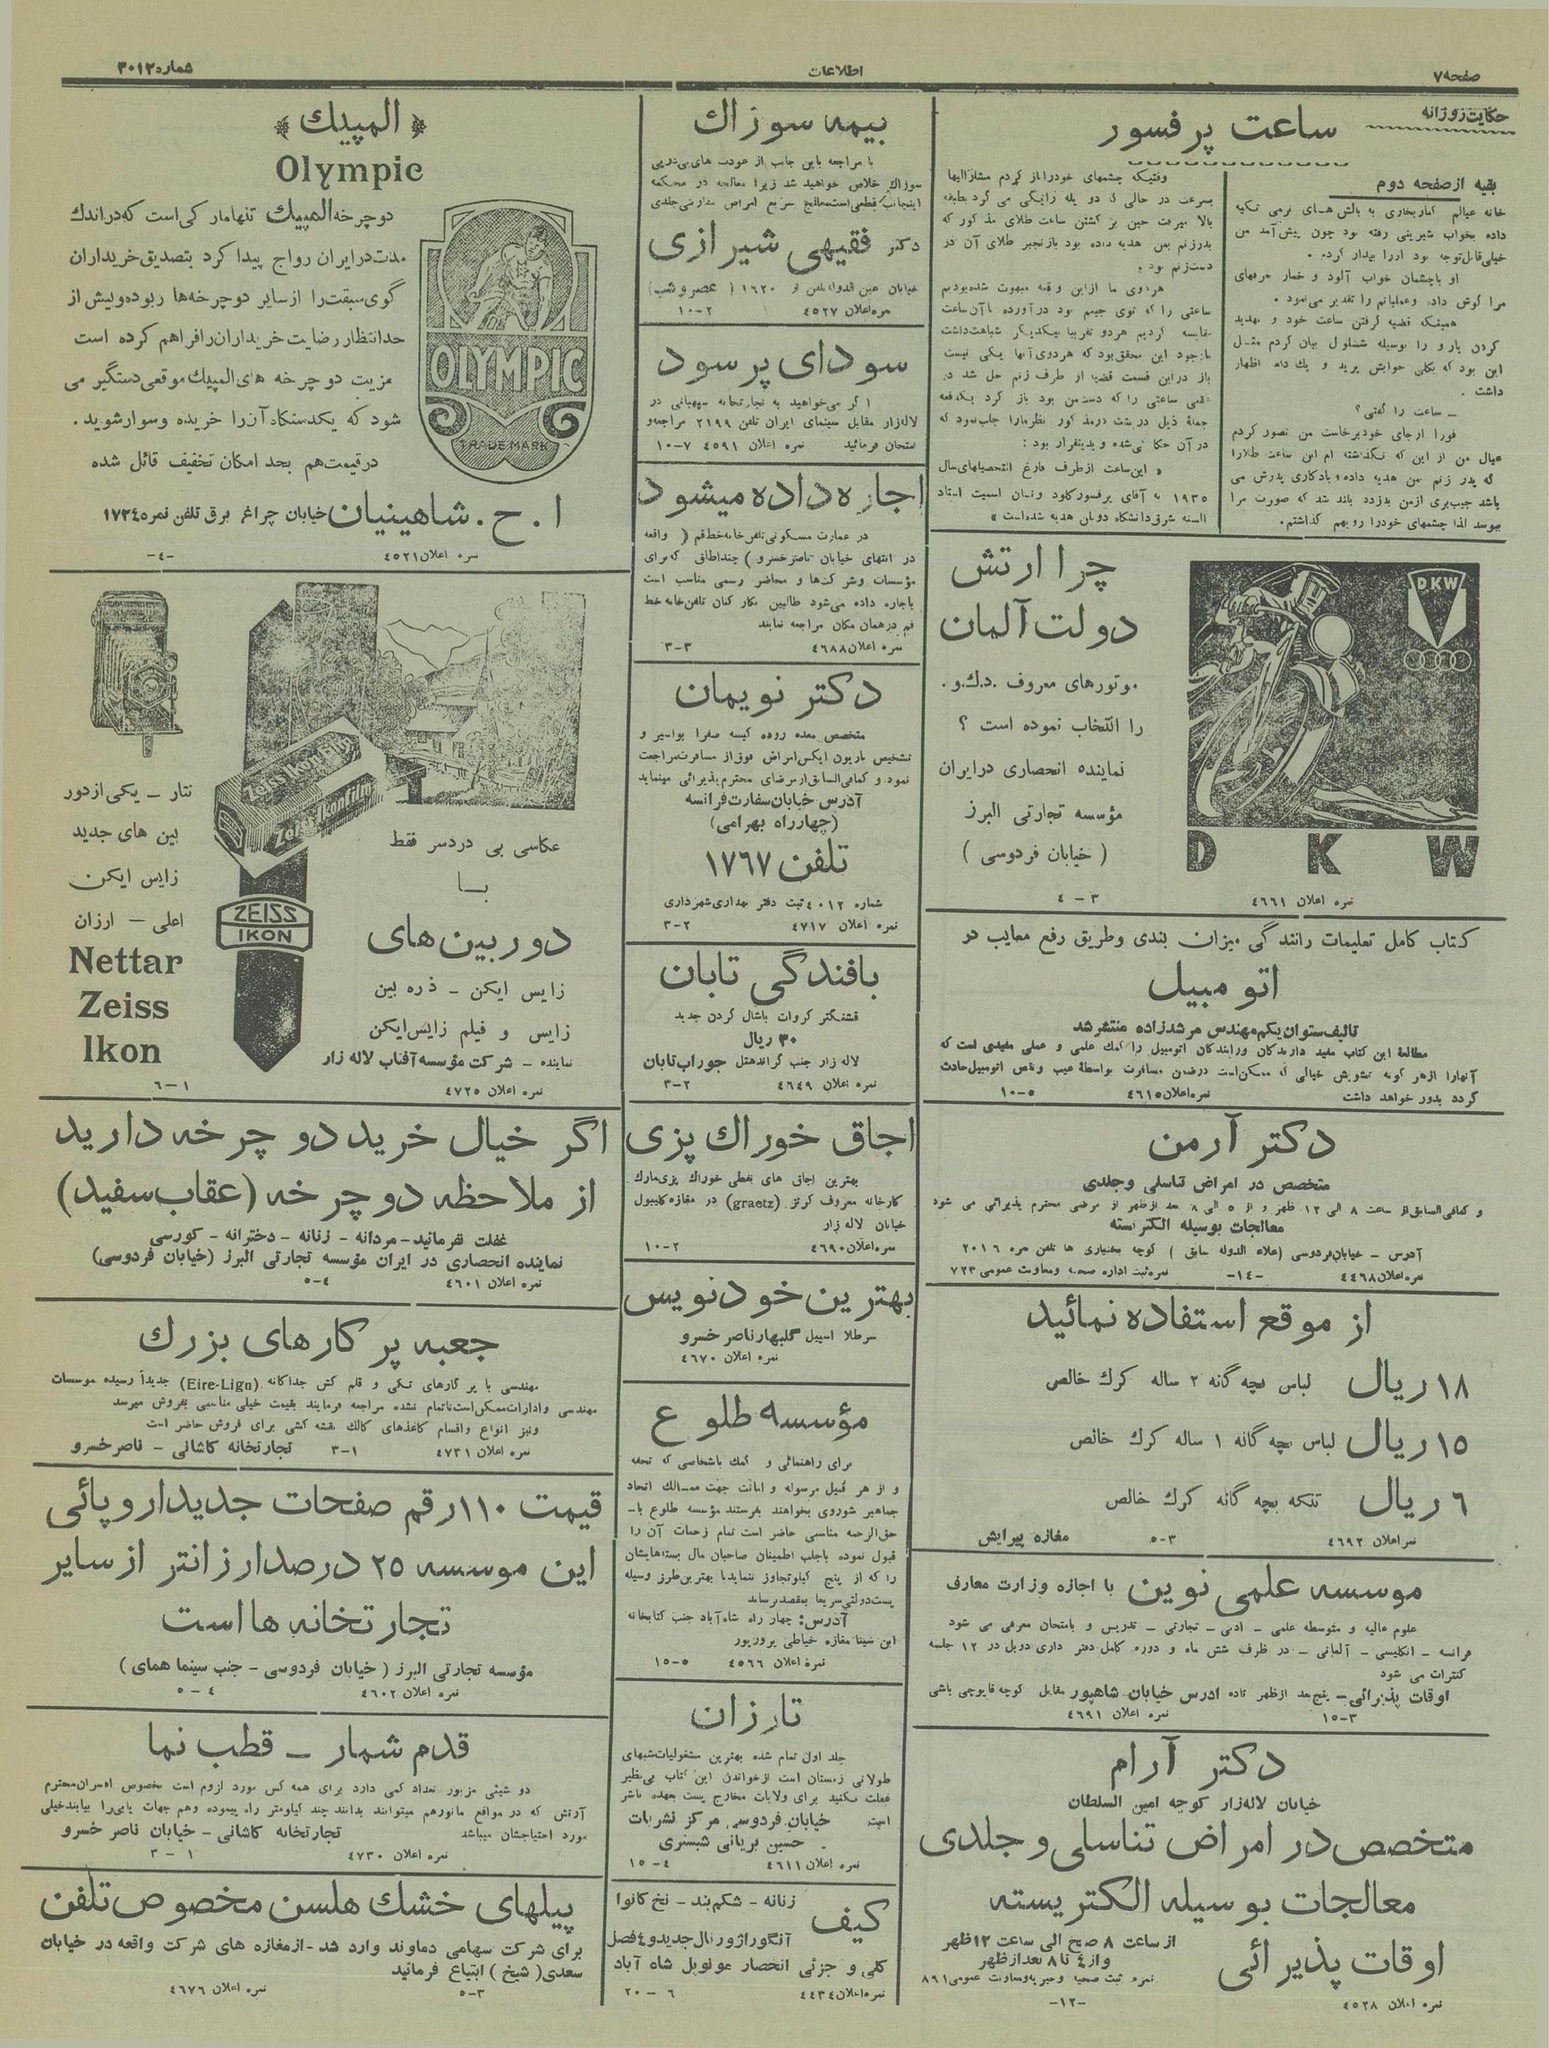 صفحه۷
اطلاعات
شماره ۳۰۱۲
حکایت روزانه
ساعت پرفسور
بقیه از صفحه دوم
خانه عیالم کنار بخاری به بالش های نرمی تکیه
داده بخواب شیرینی رفته بود چون پیش آمد من
خیلی قابل توجه بود اورا بیدار کردم .
او باچشمان خواب آلود و خمار حرفهای
مرا گوش داد، وعملیاتم را تقدیر می نمود .
همینکه قضیه گرفتن ساعت خود و تهدید
کردن یارو را بوسیله ششلول بیان کردم مثل
این بود که بکلی خوابش پرید و یك دفعه اظهار
داشت .
ــ ساعت را گفتی ؟
فورا ازجای خود برخاست من تصور کردم
عیال من از این که نگذاشته ام این ساعت طلا را
که پدر زنم بمن هدیه داده و یادگاری پدرش می
باشد جیب بری ازمن بدزدد بلند شد که صورت مرا
ببوسد لذا چشمهای خودرا رویهم گذاشتم .
وقتیکه چشمهای خودرا باز کردم مشارالیها
بسرعت در حالی که دو پله را یکی می کرد بطبقه
بالا میرفت حین بر گشتن ساعت طلای مذکور که
پدرزنم بمن هدیه داده بود بازنجیر طلای آن در
دست زنم بود .
هردوی ما ازاین وقعه مبهوت شده بودیم
ساعتی را که توی جیبم بود در آورده با آن ساعت
مقایسه کردیم هردو تقریبا بیکدیگر شباهت داشت
باوجود این محقق بود که هردوی آنها یکی نیست
باز دراین قسمت قضیه از طرف زنم حل شد در
عقبی ساعتی را که دست من بود باز کرد یکدفعه
جملهٔ ذیل در پشت در مذکور نظر مارا جلب نمود که
در آن حکاکی شده و بدینقرار بود :
« این ساعت از طرف فارغ التحصیلهای سال
۱۹۳۵ به آقای پرفسور کلود
السنه شرقی دانشگاه هدیه شده است »
چرا ارتش
دولت آلمان
موتورهای معروف د.ك.و.
را انتخاب نموده است ؟
نماینده انحصاری درایران
مؤسسه تجارتی البرز
( خیابان فردوسی )
DKW
D K W
نمره اعلان ۴۶۶۱ ۳ - ۴
کتاب کامل تعلیمات رانندگی میزان بندی وطریق رفع معایب دو
اتومبیل
تالیف ستوان یکم مهندس مرشد زاده منتشر شد
مطالعهٔ این کتاب مفید دارندگان ورانندگان اتومبیل را کمك علمی و عملی مفیدی است که
آنهارا ازهر گونه تشویش خیالی که ممکن است درضمن مسافرت بواسطهٔ عیب ونقص اتومبیل حادث
گردد بدور خواهد داشت نمره اعلان ۴۶۱۵ ۵-۱۰
دکتر آرمن
متخصص در امراض تناسلی وجلدی
و کمافی السابق از ساعت ۸ الی ۱۲ ظهر و از ۵ الی ۸ بعد از ظهر از مرضی محترم پذیرائی می شود
معالجات بوسیله الکتریسته
آدرس ــ خیابان فردوسی (علاء الدوله سابق ) کوچه بختیاری ها تلفن نمره ۲۰۱۶
نمره اعلان ۴۴۶۸ -۱۴- نمره ثبت اداره صحیه ومعاونت عمومی ۷۲۳
از موقع استفاده نمائید
۱۸ ریال لباس بچه گانه ۲ ساله کرك خالص
۱۵ ریال لباس بچه گانه ۱ ساله کرك خالص
۶ ریال تنکه بچه گانه کرك خالص
نمره اعلان ۴۶۹۲ ۳-۵ مغازه پیرایش
موسسه علمی نوین با اجازه وزارت معارف
علوم عالیه و متوسطه علمی ــ ادبی ــ تجارتی ــ تدریس و بامتحان معرفی می شود
فرانسه ــ انگلیسی ــ آلمانی ــ در ظرف شش ماه و دوره کامل دفتر داری دوبل در ۱۲ جلسه
کنترات می شود
اوقات پذیرائی ــ پنج بعد ازظهر ادرس خیابان شاهپور مقابل کوچه قاپوچی باشی
۳-۱۵ نمره اعلان ۴۶۹۱
دکتر آرام
خیابان لاله زار کوچه امین السلطان
متخصص در امراض تناسلی و جلدی
معالجات بوسیله الکتریسته
اوقات پذیرائی
از ساعت ۸ صبح الی ساعت ۱۲ ظهر
واز ۴ تا ۸ بعد از ظهر
نمره ثبت صحیه و خیریه ومعاونت عمومی ۸۹۱
نمره اعلان ۴۵۲۸ -۱۲-
بیمه سوزاك
با مراجعه باین جانب از عودت های پی درپی
سوزاك خلاص خواهید شد زیرا معالجه در محکمه
اینجانب قطعی است معالج سریع امراض مقاربتی جلدی
دکتر فقیهی شیرازی
خیابان عین الدوله تلفن نمره ۱۶۲۰ ( عصر و شب )
نمره اعلان ۴۵۲۷ ۲-۱۰
سودای پرسود
اگر می خواهید به تجارتخانه سپهبانی در
لاله زار مقابل سینمای ایران تلفن ۲۱۹۹ مراجعه و
امتحان فرمائید نمره اعلان ۴۵۹۱ ۷-۱۰
اجاره داده میشود
در عمارت مسکونی تلفن خانه خط قم ( واقعه
در انتهای خیابان ناصر خسرو ) چند اطاقی که برای
مؤسسات وشرکت ها و محاضر رسمی مناسب است
باجاره داده می شود طالبین بکار کنان تلفن خانه خط
قم در همان مکان مراجعه نمایند
نمره اعلان ۴۶۸۸ ۳-۳
دکتر نویمان
متخصص معده روده کیسه صفرا بواسیر و
تشخیص باریون ایکس امراض فوق از مسافرت مراجعت
نمود. و کمافی السابق از مرضای محترم پذیرائی مینماید
آدرس خیابان سفارت فرانسه
(چهارراه بهرامی)
تلفن ۱۷۶۷
شماره ۴۰۱۲ ثبت دفتر بهداری شهرداری
نمره اعلان ۴۷۱۷ ۲-۳
بافندگی تابان
قشنگتر کروات باشال گردن جدید
۳۰ ریال
لاله زار جنب گراند هتل جوراب تابان
نمره اعلان ۴۶۴۹ ۲-۳
اجاق خوراك پزی
بهترین اجاق های نفطی خوراك پزی مارك
کارخانه معروف گرتز (graetz) در مغازه کلیپول
خیابان لاله زار
نمره اعلان ۴۶۹۰ ۲-۱۰
بهترین خودنویس
سرطلا اسپیل گلبهار ناصر خسرو
نمره اعلان ۴۶۷۰
مؤسسه طلوع
برای راهنمائی و کمك باشخاصی که تحفه
و از هر قبیل مرسوله و امانت جهت ممالك اتحاد
جماهیر شوروی بخواهند بفرستند مؤسسه طلوع با-
حق الزحمه مناسبی حاضر است تمام زحمات آن را
قبول نموده باجلب اطمینان صاحبان مال بسته هایشان
را که از پنج کیلو تجاوز ننماید با بهترین طرز وسیله
پست دولتی سریعا بمقصد برساند
آدرس: چهار راه شاه آباد جنب کتابخانه
ابن سینا مغازه خیاطی پرورپور
نمره اعلان ۴۵۶۶ ۵-۱۵
تارزان
جلد اول تمام شده بهترین مشغولیات شبهای
طولانی زمستان است از خواندن این کتاب بی نظیر
غفلت مکنید برای ولایات مخارج پست بعهده ناشر
است خیابان فردوسی مرکز نشریات
حسین بریانی شبستری
نمره اعلان ۴۶۱۱ ۴-۱۵
کیف
زنانه - شکم بند - نخ کانوا
آنگورا ژورنال جدید و ۴ فصل
کلی و جزئی انحصار مونوپل شاه آباد
نمره اعلان ۴۴۳۴ ۶ - ۲۰
« المپیك »
Olympic
دوچرخه المپیك تنها مارکی است که در اندك
مدت در ایران رواج پیدا کرد بتصدیق خریداران
گوی سبقت را از سایر دوچرخه ها ربوده و بیش از
حد انتظار رضایت خریداران را فراهم کرده است
مزیت دوچرخه های المپیك موقعی دستگیر می
شود که یکدستگاه آن را خریده وسوار شوید .
در قیمت هم بحد امکان تخفیف قائل شده
OLYMPIC
TRADE MARK
ا . ح . شاهینیان خیابان چراغ برق تلفن نمره ۱۷۳۴
نمره اعلان ۴۵۲۱ -۴-
Zeiss Ikon Film
Zeiss Ikonfilm
ZEISS
IKON
نتار ــ یکی از دور
بین های جدید
زایس ایکن
اعلی ــ ارزان
Nettar
Zeiss
Ikon
عکاسی بی دردسر فقط
با
دوربین های
زایس ایکن ــ ذره بین
زایس و فیلم زایس ایکن
نماینده ــ شرکت مؤسسه آفتاب لاله زار
نمره اعلان ۴۷۲۵ ۱-۶
اگر خیال خرید دوچرخه دارید
از ملاحظه دوچرخه (عقاب سفید)
غفلت نفرمائید ــ مردانه ــ زنانه ــ دخترانه ــ کورسی
نماینده انحصاری در ایران مؤسسه تجارتی البرز (خیابان فردوسی)
نمره اعلان ۴۶۰۱ ۴-۵
جعبه پرگارهای بزرك
مهندسی با پرگارهای تکی و قلم کش جداگانه (Eire-Lign) جدیداً رسیده موسسات
مهندسی وادارات ممکن است تا تمام نشده مراجعه فرمایند بقیمت خیلی مناسبی بفروش میرسد
ونیز انواع واقسام کاغذهای کالك نقشه کشی برای فروش حاضر است
نمره اعلان ۴۷۳۱ ۱-۳ تجارتخانه کاشانی ــ ناصر خسرو
قیمت ۱۱۰ رقم صفحات جدید اروپائی
این موسسه ۲۵ درصد ارزانتر از سایر
تجارتخانه ها است
مؤسسه تجارتی البرز ( خیابان فردوسی ــ جنب سینما همای )
نمره اعلان ۴۶۰۲ ۴ - ۵
قدم شمار ــ قطب نما
دو شیئی مزبور تعداد کمی دارد برای همه کس مورد لزوم است مخصوص افسران محترم
آرتش که در مواقع مانور هم میتوانند بدانند چند کیلومتر راه پیموده وهم جهات یابی را بیابند خیلی
مورد احتیاجشان میباشد تجارتخانه کاشانی ــ خیابان ناصر خسرو
نمره اعلان ۴۷۳۰ ۱ - ۳
پیلهای خشك هلسن مخصوص تلفن
برای شرکت سهامی دماوند وارد شد - از مغازه های شرکت واقعه در خیابان
سعدی ( شیخ ) ابتیاع فرمائید
۳-۵ نمره اعلان ۴۶۷۶